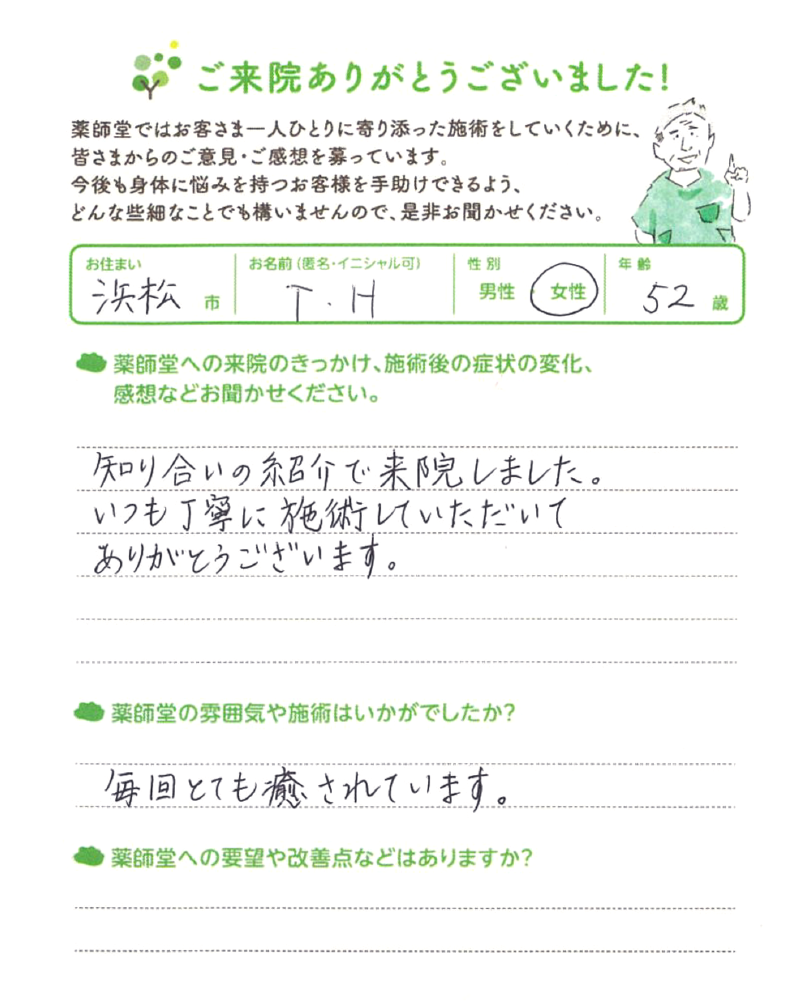 ご来院ありがとうございました!
薬師堂ではお客さま一人ひとりに寄り添った施術をしていくために、
皆さまからのご意見・ご感想を募っています。
今後も身体に悩みを持つお客様を手助けできるよう、
どんな些細なことでも構いませんので、是非お聞かせください。
お住まい お名前(匿名・イニシャル可) 性別 年齢
浜松 市 T.H 男性 女性 52 歳
薬師堂への来院のきっかけ、施術後の症状の変化、
感想などお聞かせください。
知り合いの紹介で来院しました。
いつも丁寧に施術していただいて
ありがとうございます。
薬師堂の雰囲気や施術はいかがでしたか?
毎回とても癒されています。
薬師堂への要望や改善点などはありますか?